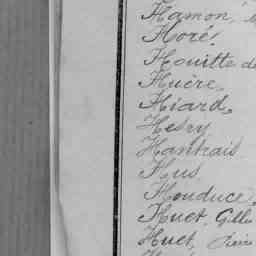 Hamon,
Horé
Houitte de
Huère,
Hiard,
Hesry
Hantrais
Hus
Houduce
Huet, Gille
Huet, Pierre